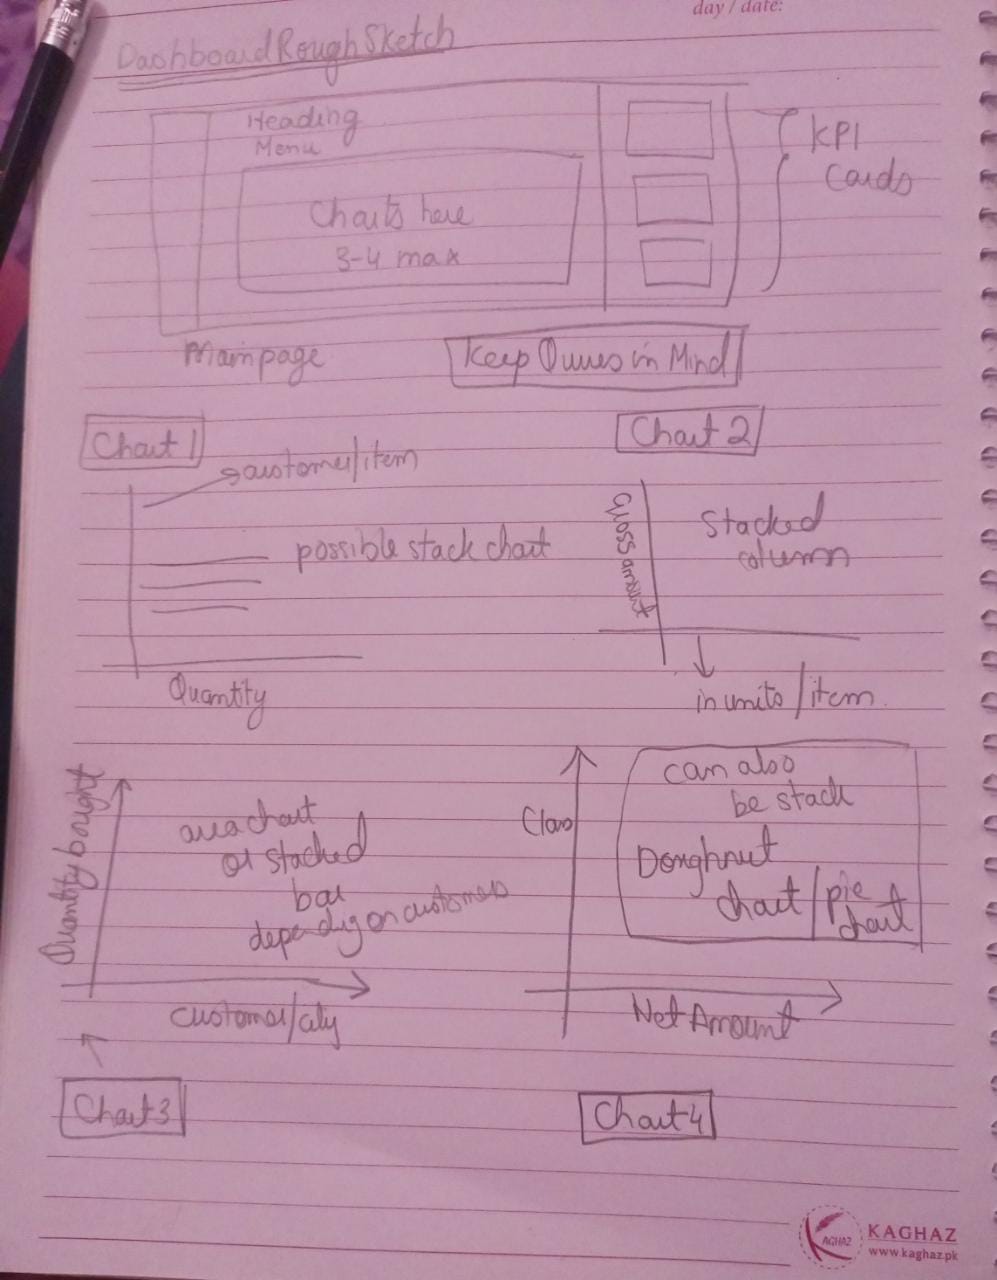 day / date:
Dashboard Rough Sketch
Heading
Menu
Charts here
3-4 max
KPI
Cards
Main page
Keep Queries in Mind
Chart 1
customer/item
possible stack chart
Quantity
Chart 2
Gross amount
Stacked
column
in units/item
Quantity bought
area chart
or stacked
bar
depending on customers
customer/city
Chart 3
Class
can also
be stack
Doughnut
chart/pie
chart
Net Amount
Chart 4
KAGHAZ
KAGHAZ
www.kaghaz.pk